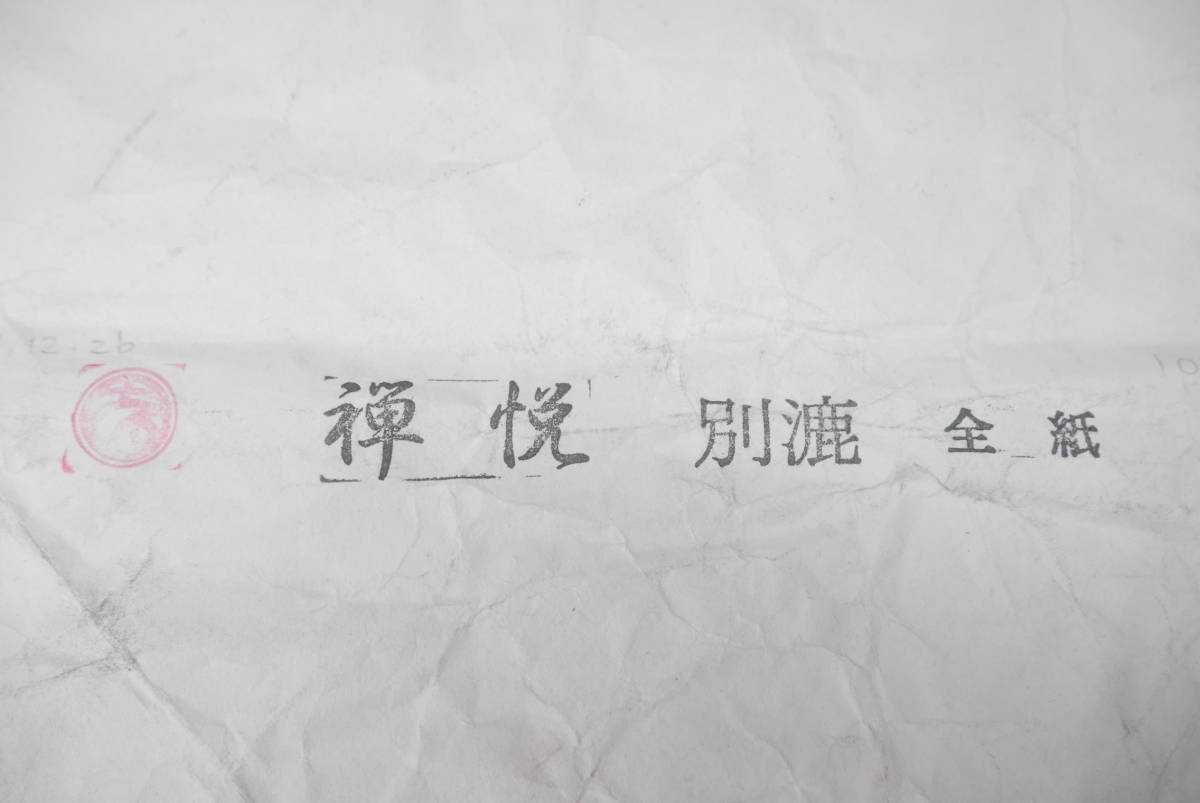 12.26
禅悦 別漉 全紙
10